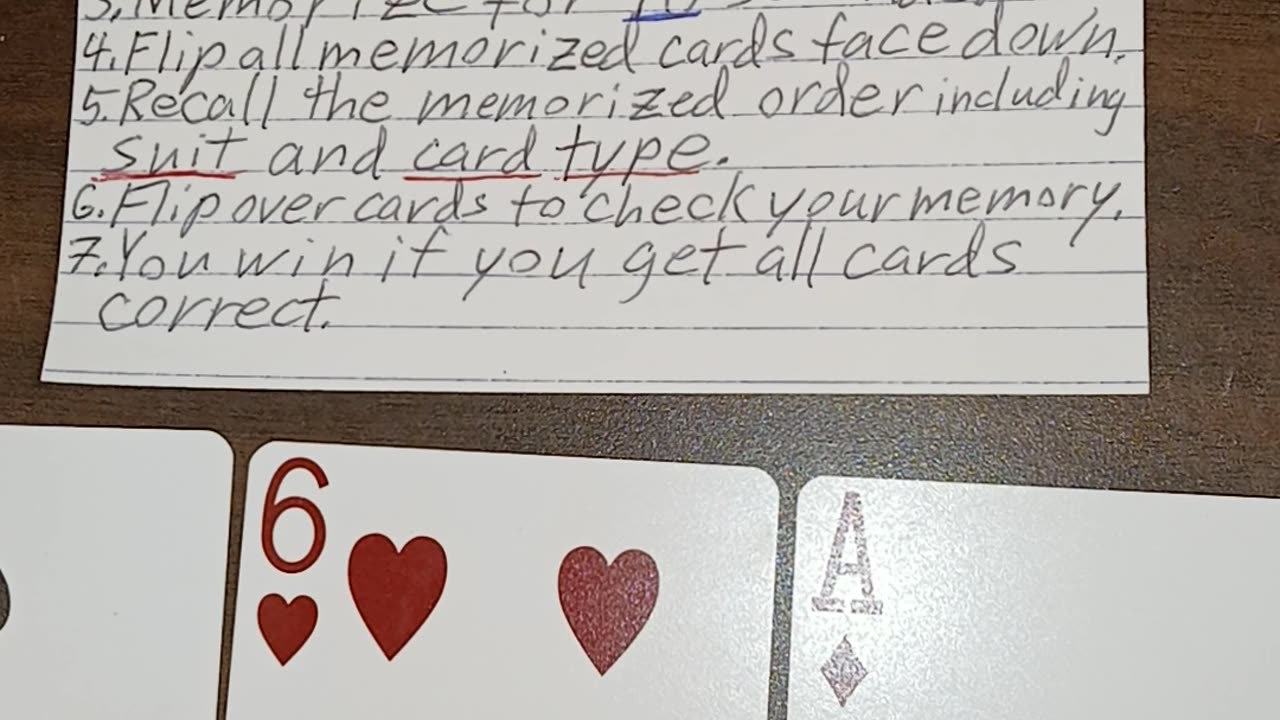 3. Memorize for
4. Flip all memorized cards face down.
5. Recall the memorized order including
suit and card type.
6. Flip over cards to check your memory.
7. You win if you get all cards
correct.
6
A